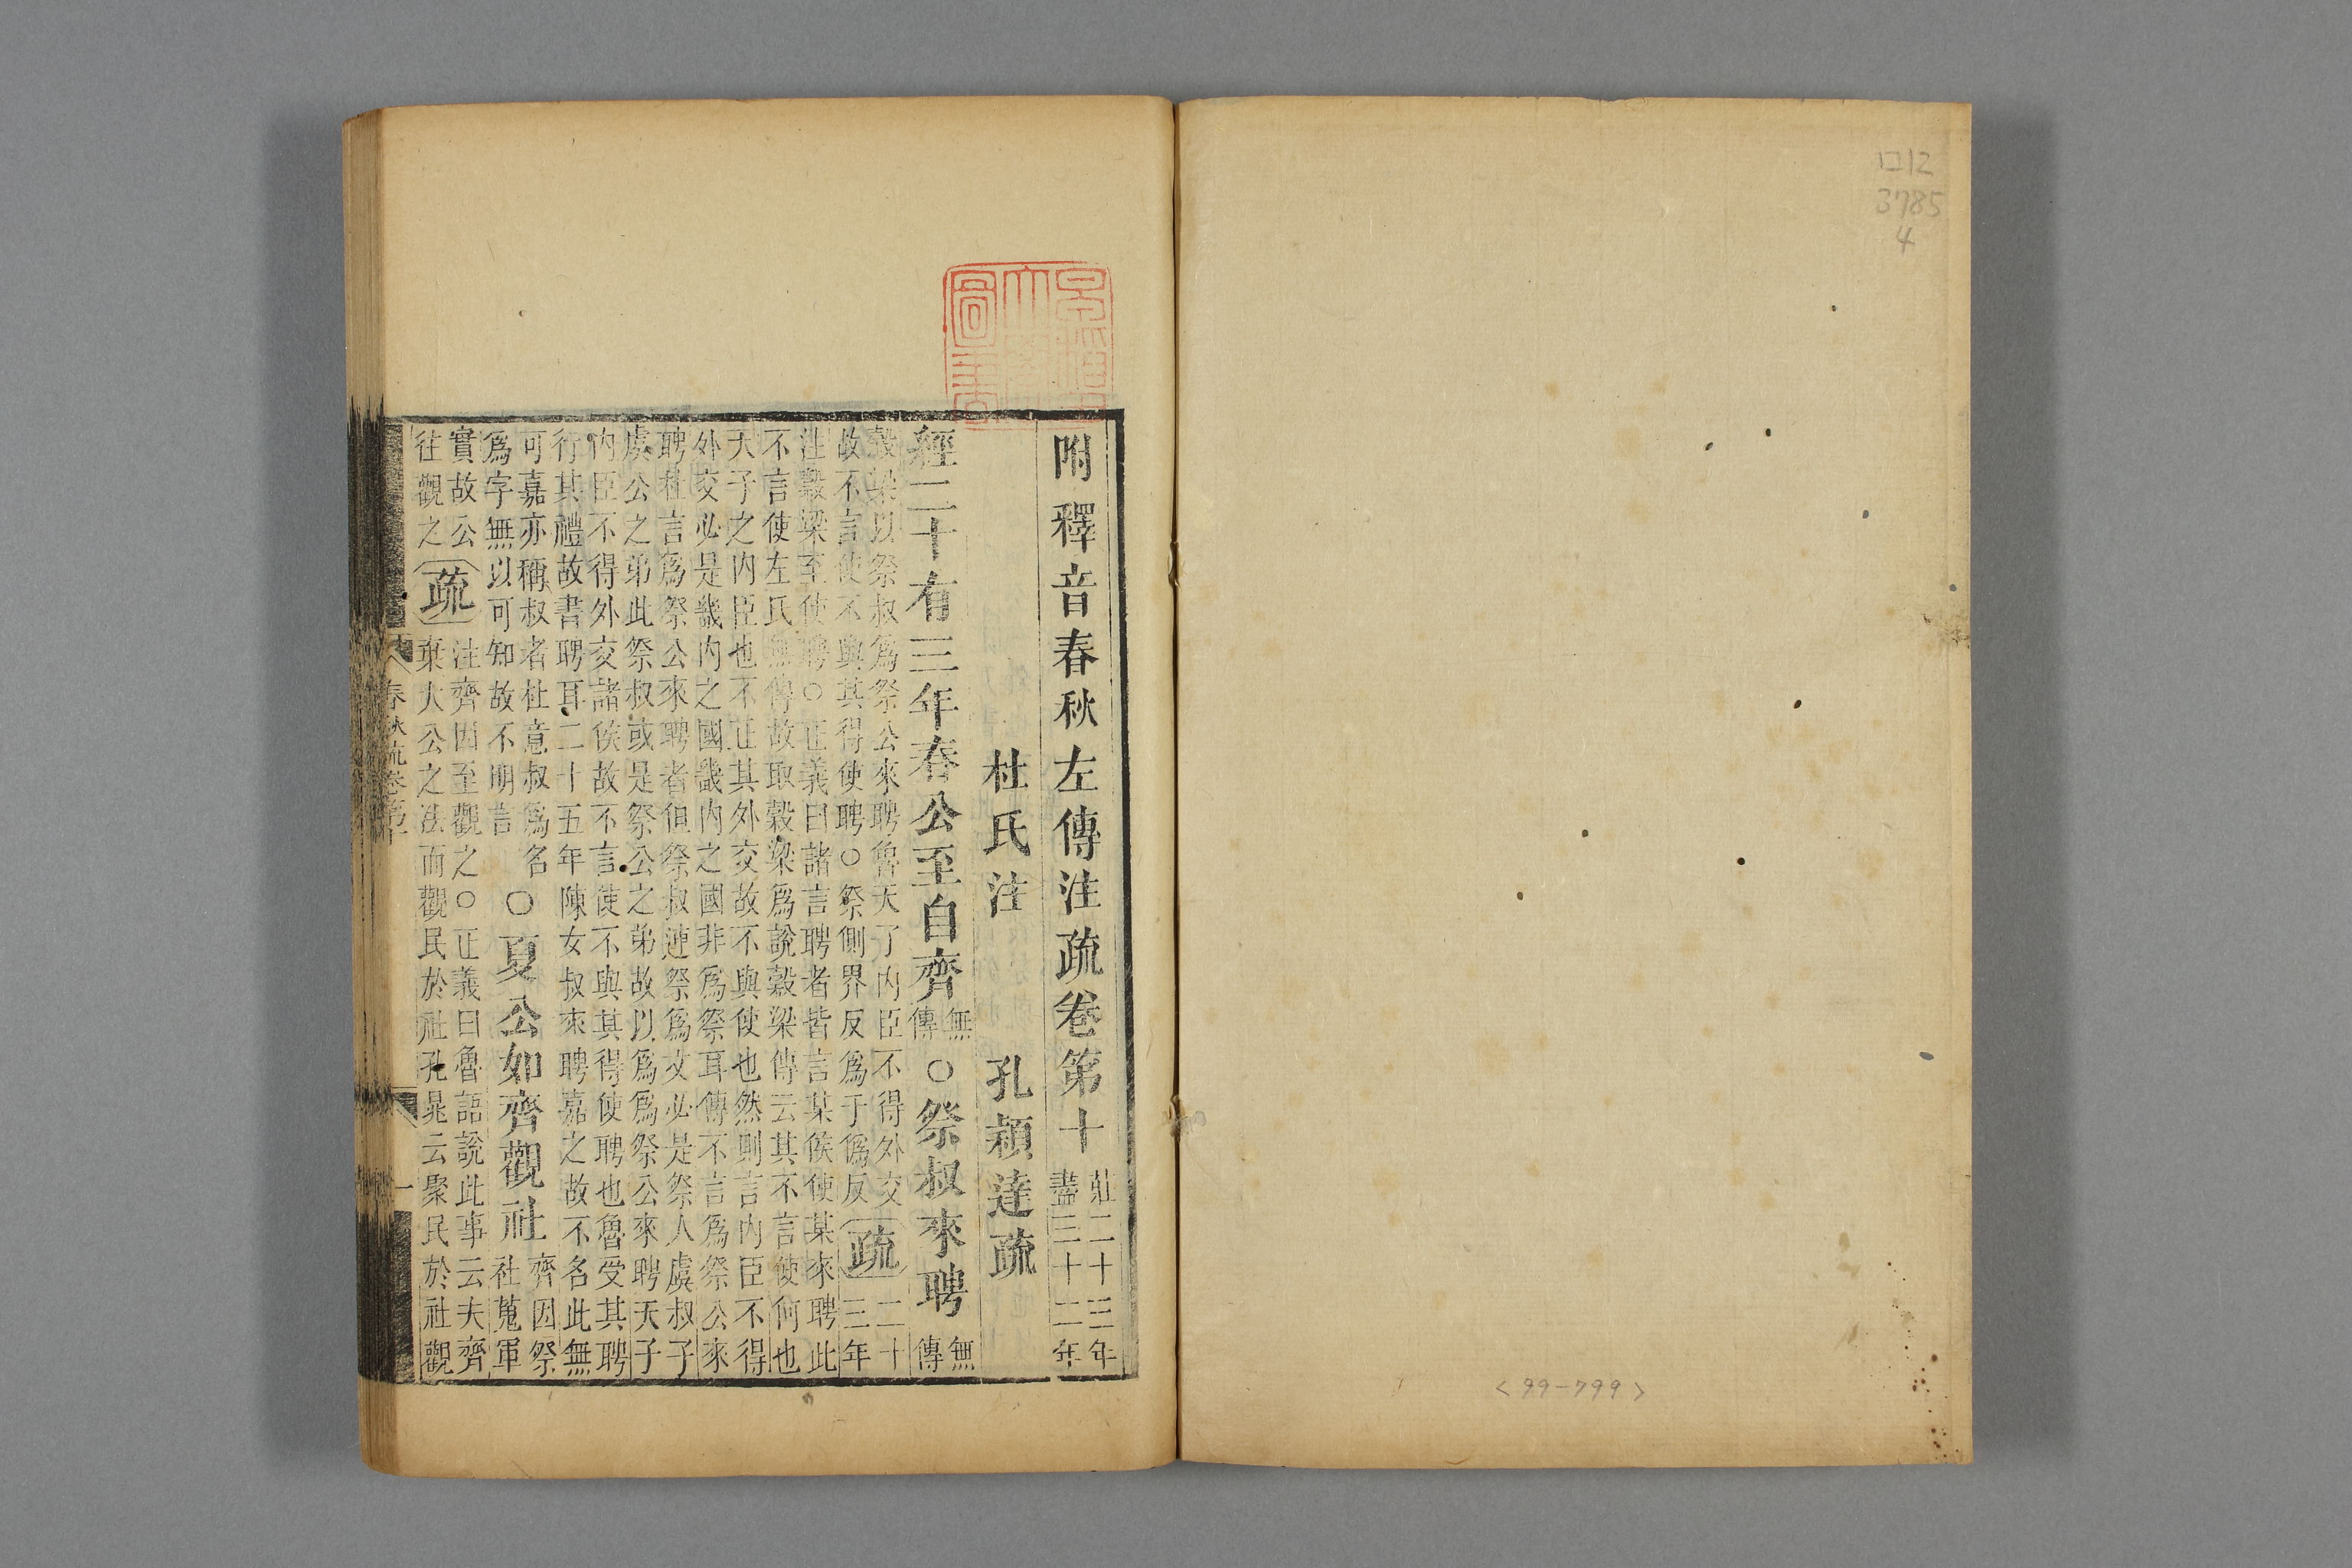 口12
3785
4
<99-799>
附釋音春秋左傳注疏卷第十 莊二十三年盡三十二年
杜氏注 孔穎達疏
經二十有三年春公至自齊 無傳 ○祭叔來聘 無傳
穀梁以祭叔爲祭公來聘魯天子內臣不得外交
故不言使不與其得使聘○祭側界反爲于僞反 疏 二十三年
注穀梁至使聘○正義曰諸言聘者皆言某侯使某來聘此
不言使左氏無傳故取穀梁爲說穀梁傳云其不言使何也
天子之內臣也不正其外交故不與使也然則言內臣不得
外交必是畿內之國畿內之國非爲祭耳傳不言爲祭公來
聘杜言爲祭公來聘者但祭叔連祭爲文必是祭人虞叔子
虞公之弟此祭叔或是祭公之弟故以爲爲祭公來聘天子
內臣不得外交諸侯故不言使不與其得使聘也魯受其聘
行其禮故書聘耳二十五年陳女叔來聘嘉之故不名此無
可嘉亦稱叔者杜意叔爲名
爲字無以可知故不明言 ○夏公如齊觀社 齊因祭社蒐軍
實故公
往觀之 疏 注齊因至觀之○正義曰魯語說此事云夫齊
棄大公之法而觀民於社孔晁云聚民於社觀
春秋疏卷第十
一